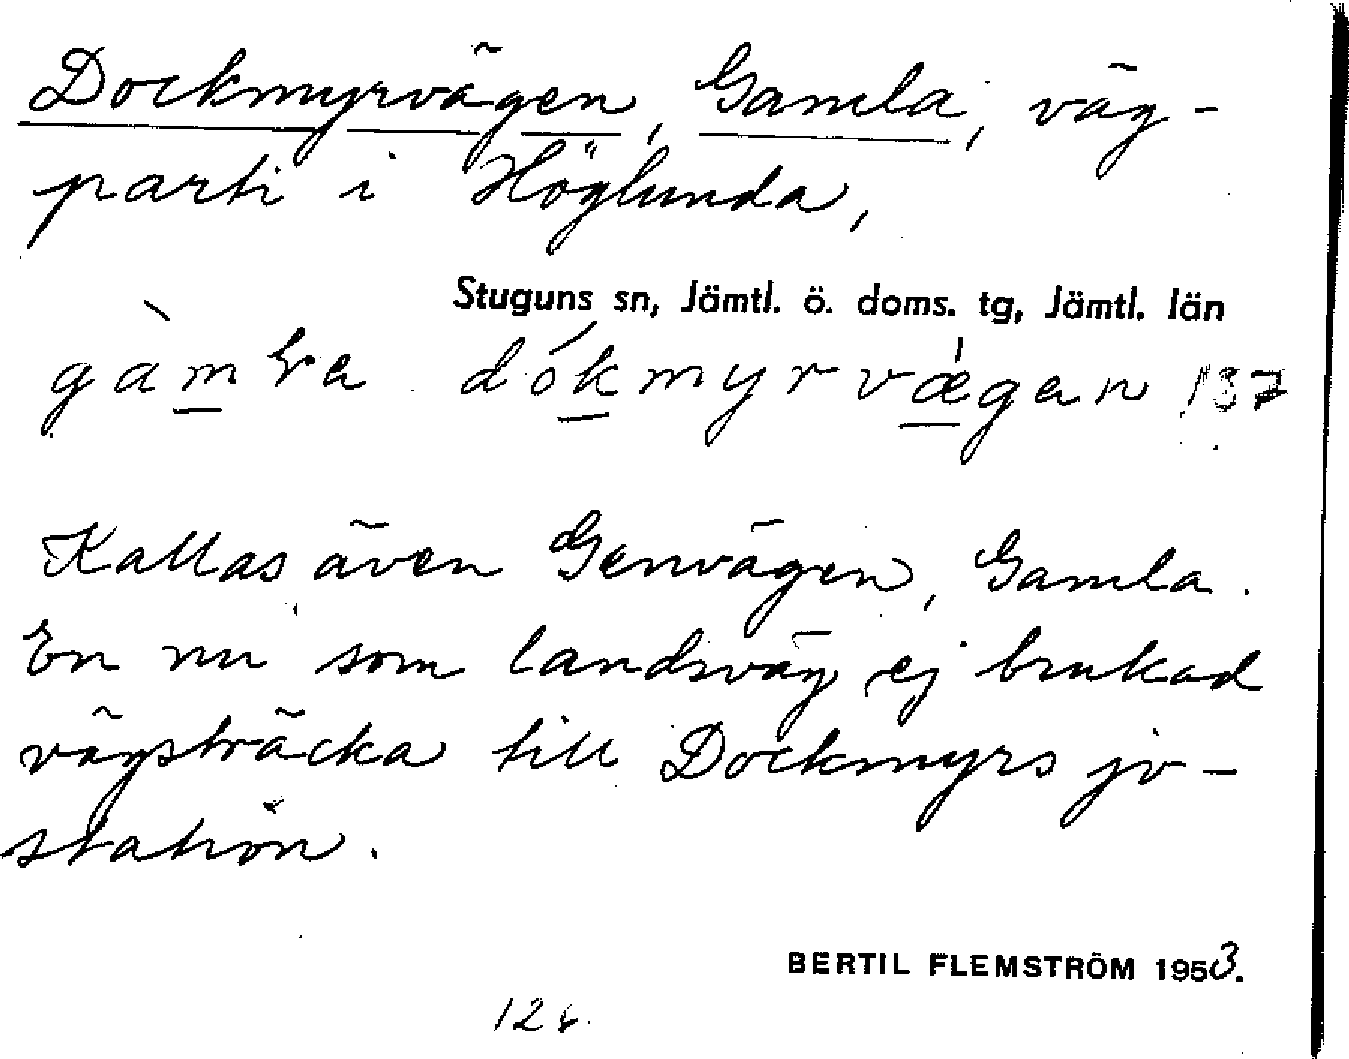 Dockmyrvägen, Gamla, väg-
parti i Höglunda,
Stuguns sn, Jämtl. ö. doms. tg, Jämtl. län
dókmyrvǽgen 137
Kallas även Genvägen, Gamla.
En nu som landsväg ej brukad
vägsträcka till Dockmyrs jv-
station.
BERTIL FLEMSTRÖM 1953.
126.